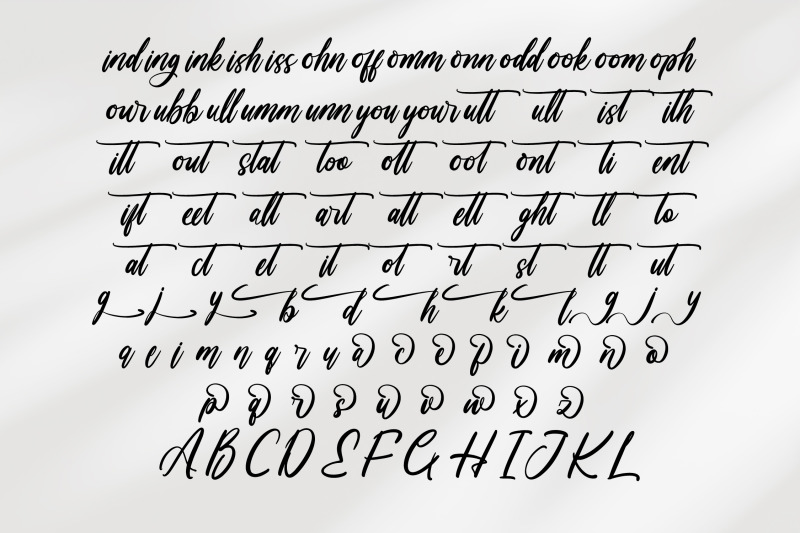 ind ing ink ish iss ohn off omm onn odd ook oom oph
our ubb ull umm unn you your utt ult ist ith
itt out stat too ott oot ont ti ent
ift eet att art att ett ght tt to
at ct et it ot rt st tt ut
g j y b d h k l g j y
a e i m n q r u a c e p v m n o
p q r s u v w x z
A B C D E F G H I J K L